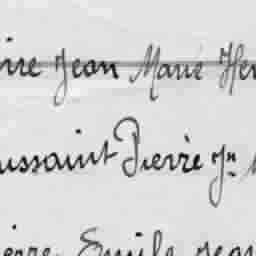 ire Jean Marie Hen
ussaint Pierre Jn
ierre Emile Jean